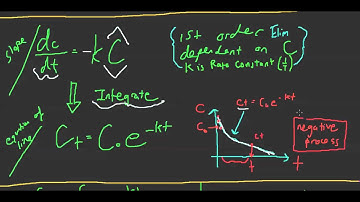 slope
dc/dt = -k C
1st order Elim
dependant on C
K is Rate Constant (1/t)
Integrate
equation of line
Ct = C₀e^-kt
C
C₀
Ct = C₀e^-kt
Ct
t
t
negative
process